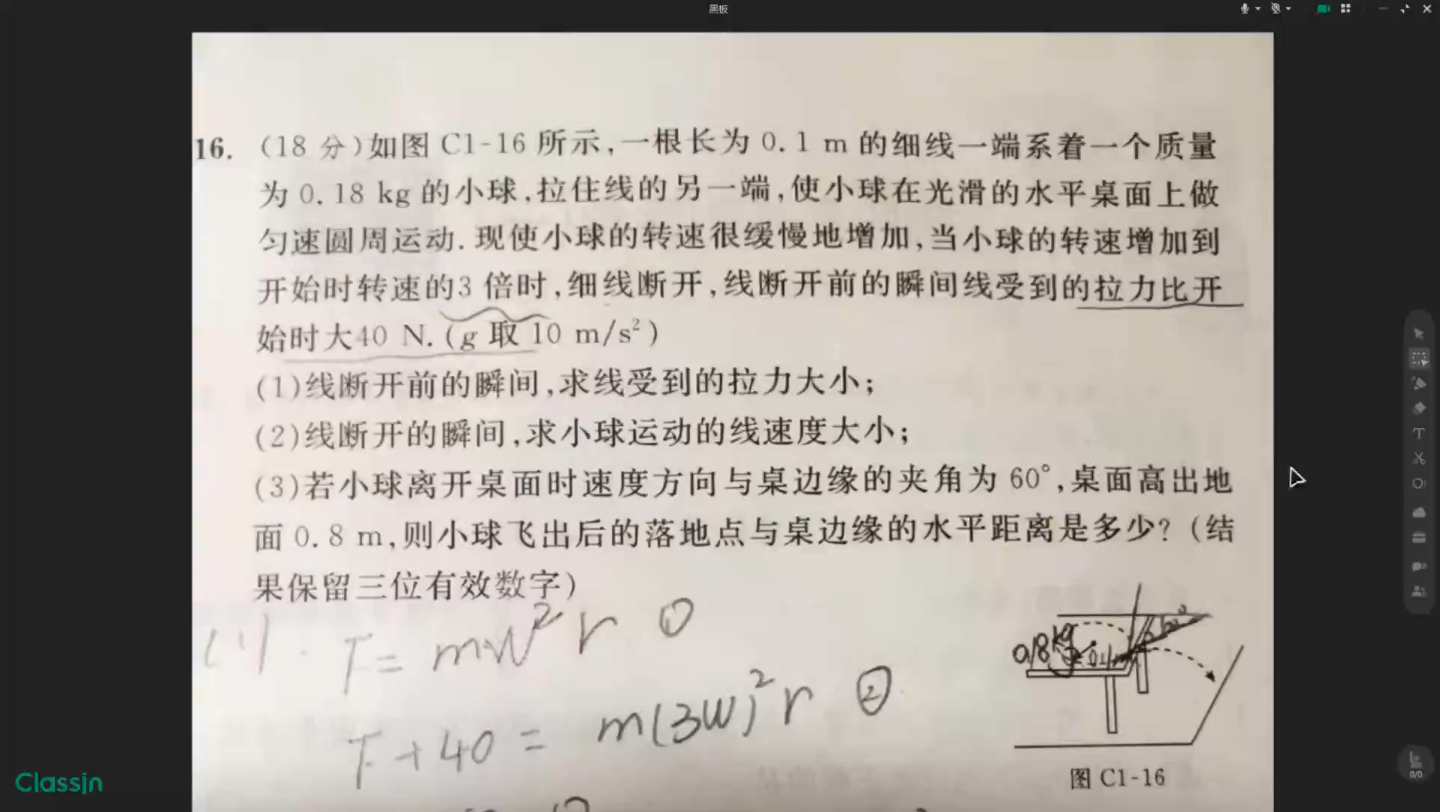 黑板
16. (18 分)如图 C1-16 所示,一根长为 0.1 m 的细线一端系着一个质量
为 0.18 kg 的小球,拉住线的另一端,使小球在光滑的水平桌面上做
匀速圆周运动.现使小球的转速很缓慢地增加,当小球的转速增加到
开始时转速的3 倍时,细线断开,线断开前的瞬间线受到的拉力比开
始时大40 N.(g 取 10 m/s²)
(1)线断开前的瞬间,求线受到的拉力大小;
(2)线断开的瞬间,求小球运动的线速度大小;
(3)若小球离开桌面时速度方向与桌边缘的夹角为 60°,桌面高出地
面 0.8 m,则小球飞出后的落地点与桌边缘的水平距离是多少?(结
果保留三位有效数字)
(1). F = mW² r ①
F+40 = m(3W)² r ②
0.18kg
60°
图 C1-16
ClassIn
0/0